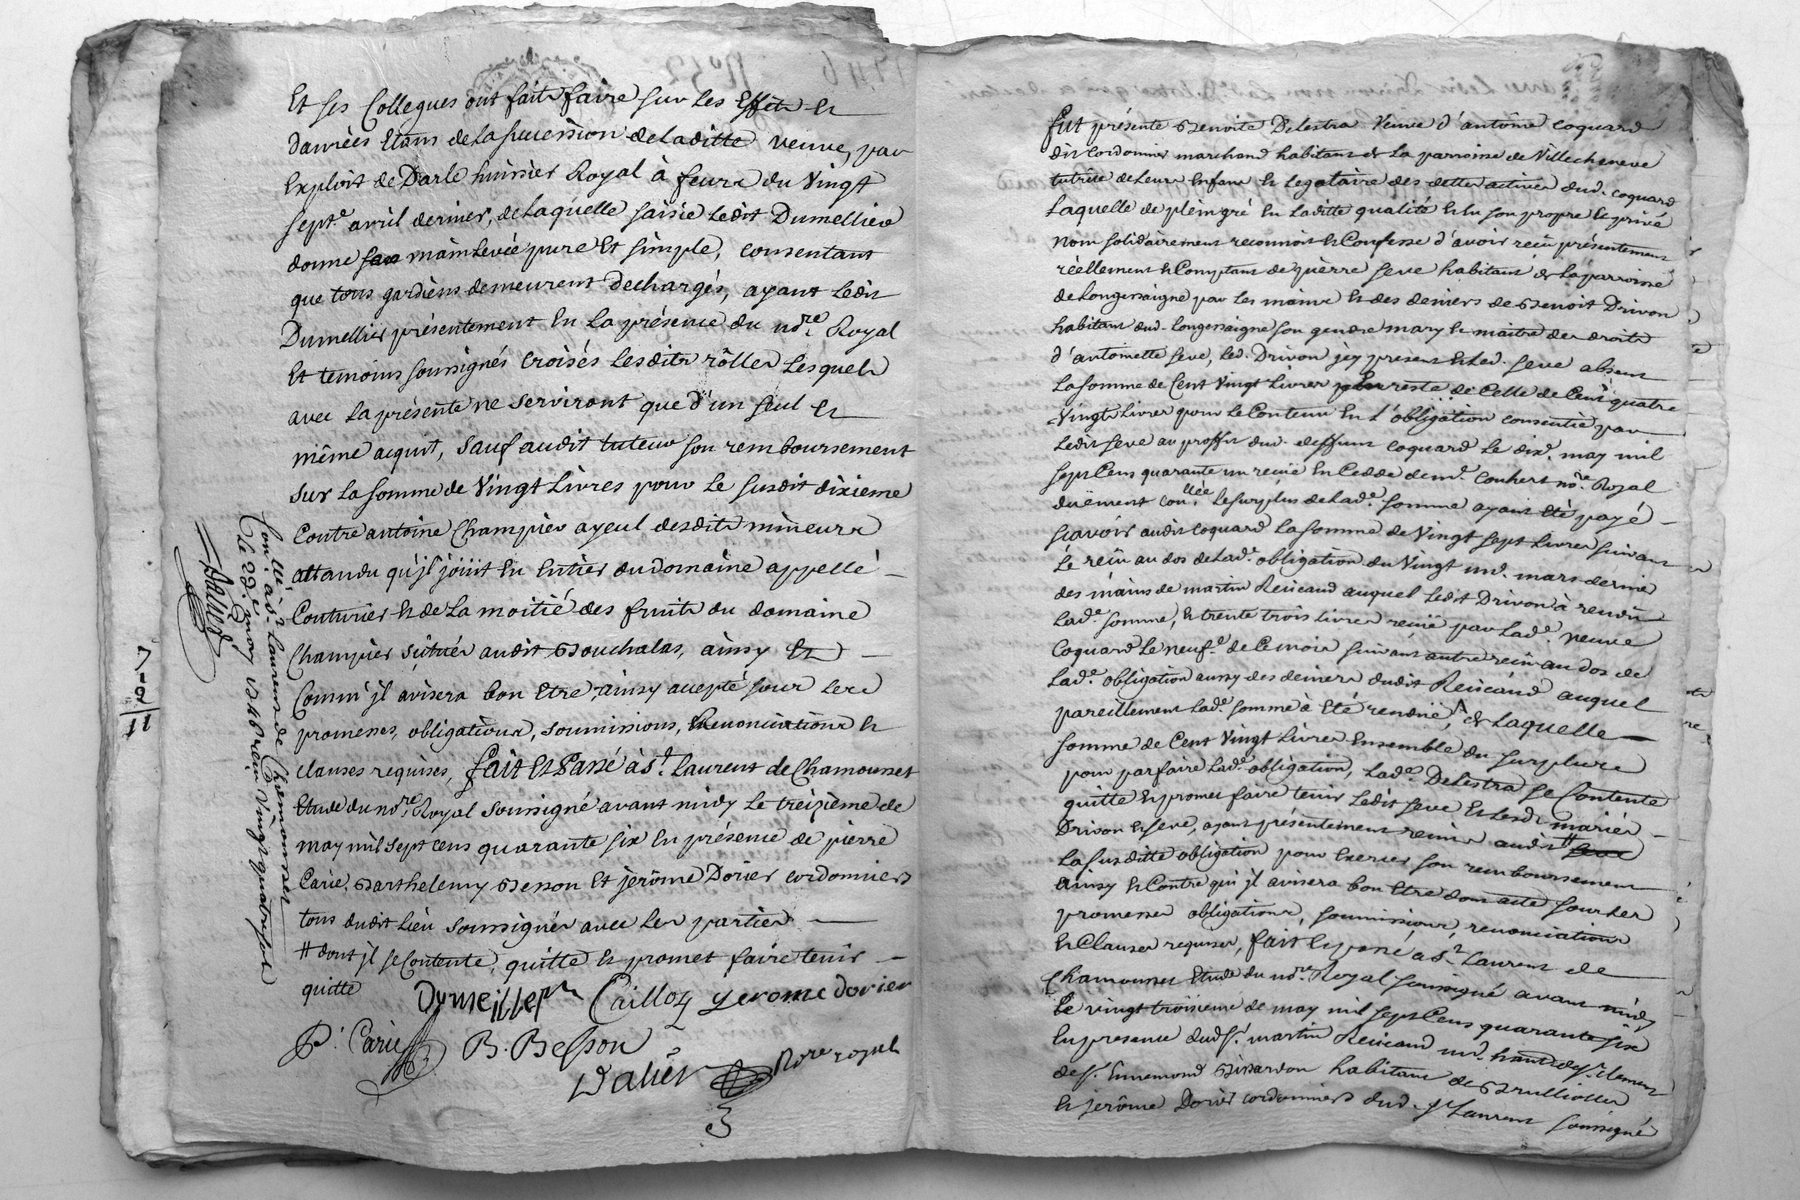 Et ses Collegues ont fait faire sur les Effets et
danrées Etans de la succession de laditte veuve, par
Exploit de Darle huissier Royal à feurs du Vingt
sept.e avril dernier, de laquelle saisie ledit Dumellier
donne mainlevée pure Et simple, consentant
que tous gardiens demeurent dechargés, ayant ledit
Dumellier présentement En la présence du no.re Royal
Et temoins soussignés croisés lesdits rôlles lesquels
avec la présente ne serviront que d'un seul et
même acquit, sauf audit tuteur son remboursement
sur la somme de Vingt Livres pour le susdit dixieme
Contre antoine Champier ayeul desdits mineurs
attandu qu'jl joüit En Entier du domaine appellé
Couturier et de la moitié des fruits du domaine
Champier situés audit Bouchalas, ainsy Et
Comm' jl avisera bon Etre, ainsy accepté sous les
promesses, obligations, soumissions, Renonciations et
clauses requises, fait Et Passé à s.t Laurent de Chamousset
Etude du no.re Royal soussigné avant midy le treizième de
may mil sept cens quarante six En présence de pierre
Carie, Barthelemy Besson Et jerôme Dorier cordonniers
tous dudit lieu soussignés avec les parties
# dont jl se Contente, quitte et promet faire tenir
quitte
Dumeillier Cailloz jerome dorier
P. Carie B. Besson
Dalier No.re royal
Con.llé à s.t Laurens de Chamousset
Le 23.e may 1746 reçu Vingt quatre sols
Dalier
7
-2
11
fut présente Benoite Delestra Veuve d'antoine coquard
dit cordonnier marchand habitant de la parroisse de Villecheneve
tutrice de leurs Enfans et legataire des dettes actives dud. coquard
Laquelle de plein gré En laditte qualité et En son propre et privé
nom solidairement reconnoit et Confesse d'avoir reçu présentement
réellement et Comptant de pierre seve habitant de la parroisse
de Longessaigne par les mains et des deniers de Benoit Drivon
habitant dud. Longessaigne son gendre mary et maitre des droits
d'antoinette seve, led. Drivon jcy present et led. seve absent
La somme de Cent Vingt Livres pour reste de Celle de Cent quatre
Vingts Livres pour le Contenu En l'obligation consentie par
Ledit seve au proffit dud. deffunt coquard le dix.e may mil
sept Cens quarante un reçue En Cedde de m.e Couhert no.re Royal
düement con.llée Le surplus de lad.e somme ayant Eté payé
scavoir audit coquard la somme de Vingt sept Livres suivant
Le reçu au dos de lad.e obligation du Vingt un.e mars dernier
des mains de martin Reucaud auquel ledit Drivon à rendu
Lad.e somme, et trente trois Livres reçue par lad.e veuve
Coquard le neuf.e de Ce mois suivant autre reçu au dos de
Lad.e obligation aussy des deniers dudit Reucaud auquel
pareillement lad.e somme à Eté rendüe, de laquelle
somme de Cent Vingt Livres Ensemble du surplus
pour parfaire lad.e obligation, lad.e Delestra se Contente
quitte et promet faire tenir ledit seve et lesd. mariés
Drivon et seve, ayant présentement remis audit #
La susditte obligation pour Exercer son remboursement
ainsy et Contre qui jl avisera bon Etre dont acte sous les
promesses obligations, soumissions, renonciations
et Clauses requises, fait et passé à s.t Laurent de
Chamousset Etude du no.re Royal soussigné avant midy
Le vingt troisieme de may mil sept Cens quarante six
En presence dud. s.r martin Reucaud
de s.r Ennemond habitant de Brullioles
et jerôme Dorier cordonnier dud. s.t Laurent soussigné